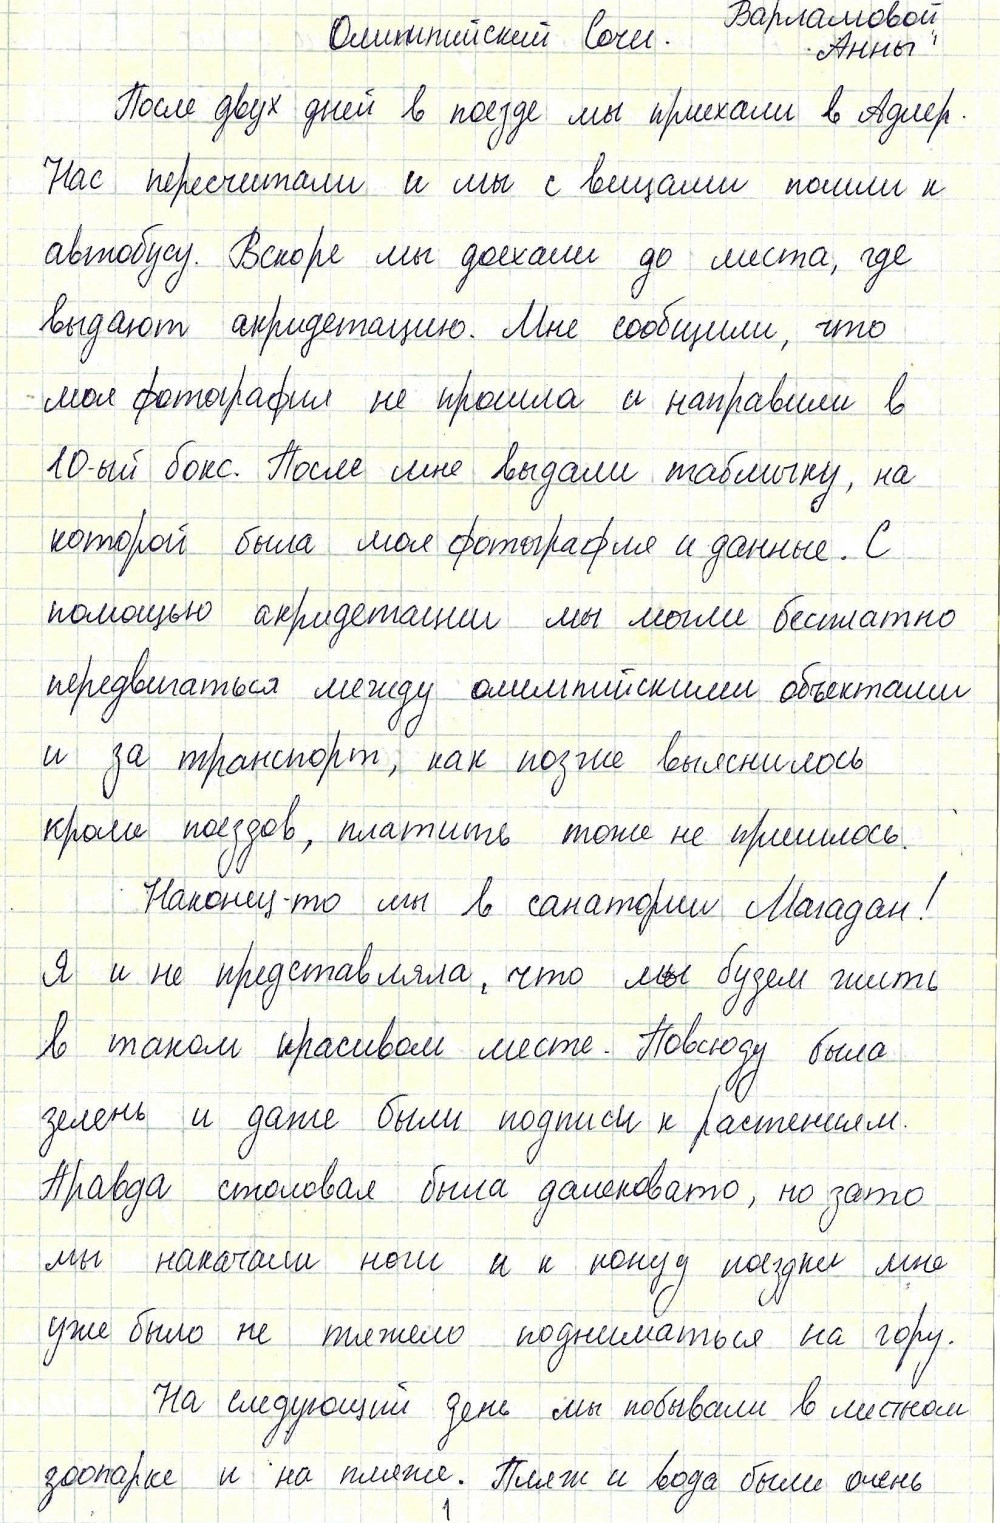 Олимпийский Сочи.
Варламовой
Анны
После двух дней в поезде мы приехали в Адлер.
Нас пересчитали и мы с вещами пошли к
автобусу. Вскоре мы доехали до места, где
выдают акридетацию. Мне сообщили, что
моя фотография не прошла и направили в
10-ый бокс. После мне выдали табличку, на
которой была моя фотография и данные. С
помощью акридетации мы могли бесплатно
передвигаться между олимпийскими объектами
и за транспорт, как позже выяснилось
кроме поездов, платить тоже не пришлось.
Наконец-то мы в санатории Магадан!
Я и не представляла, что мы будем жить
в таком красивом месте. Повсюду была
зелень и даже были подписи к растениям.
Правда столовая была далековато, но зато
мы накачали ноги и к концу поездки мне
уже было не тяжело подниматься на гору.
На следующий день мы побывали в местном
зоопарке и на пляже. Пляж и вода были очень
1